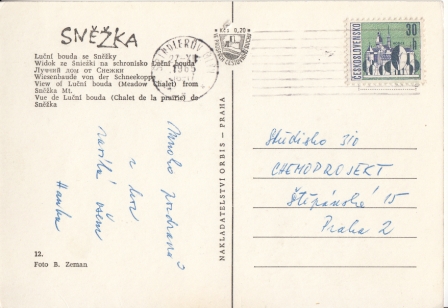 SNĚŽKA
Luční bouda se Sněžky
Widok ze Śnieżki na schronisko Luční bouda
Лучений дом от Снежки
Wiesenbaude von der Schneekoppe
View of Luční bouda (Meadow Chalet) from
Sněžka Mt.
Vue de Luční bouda (Chalet de la prairie) de
Sněžka
Mnoho pozdravů
z hor
všem
Hanka
12.
Foto B. Zeman
NAKLADATELSTVÍ ORBIS - PRAHA
Kčs 0,20
1965
30
h
ČESKOSLOVENSKO
Středisko 310
CHEMOPROJEKT
Štěpánská 15
Praha 2